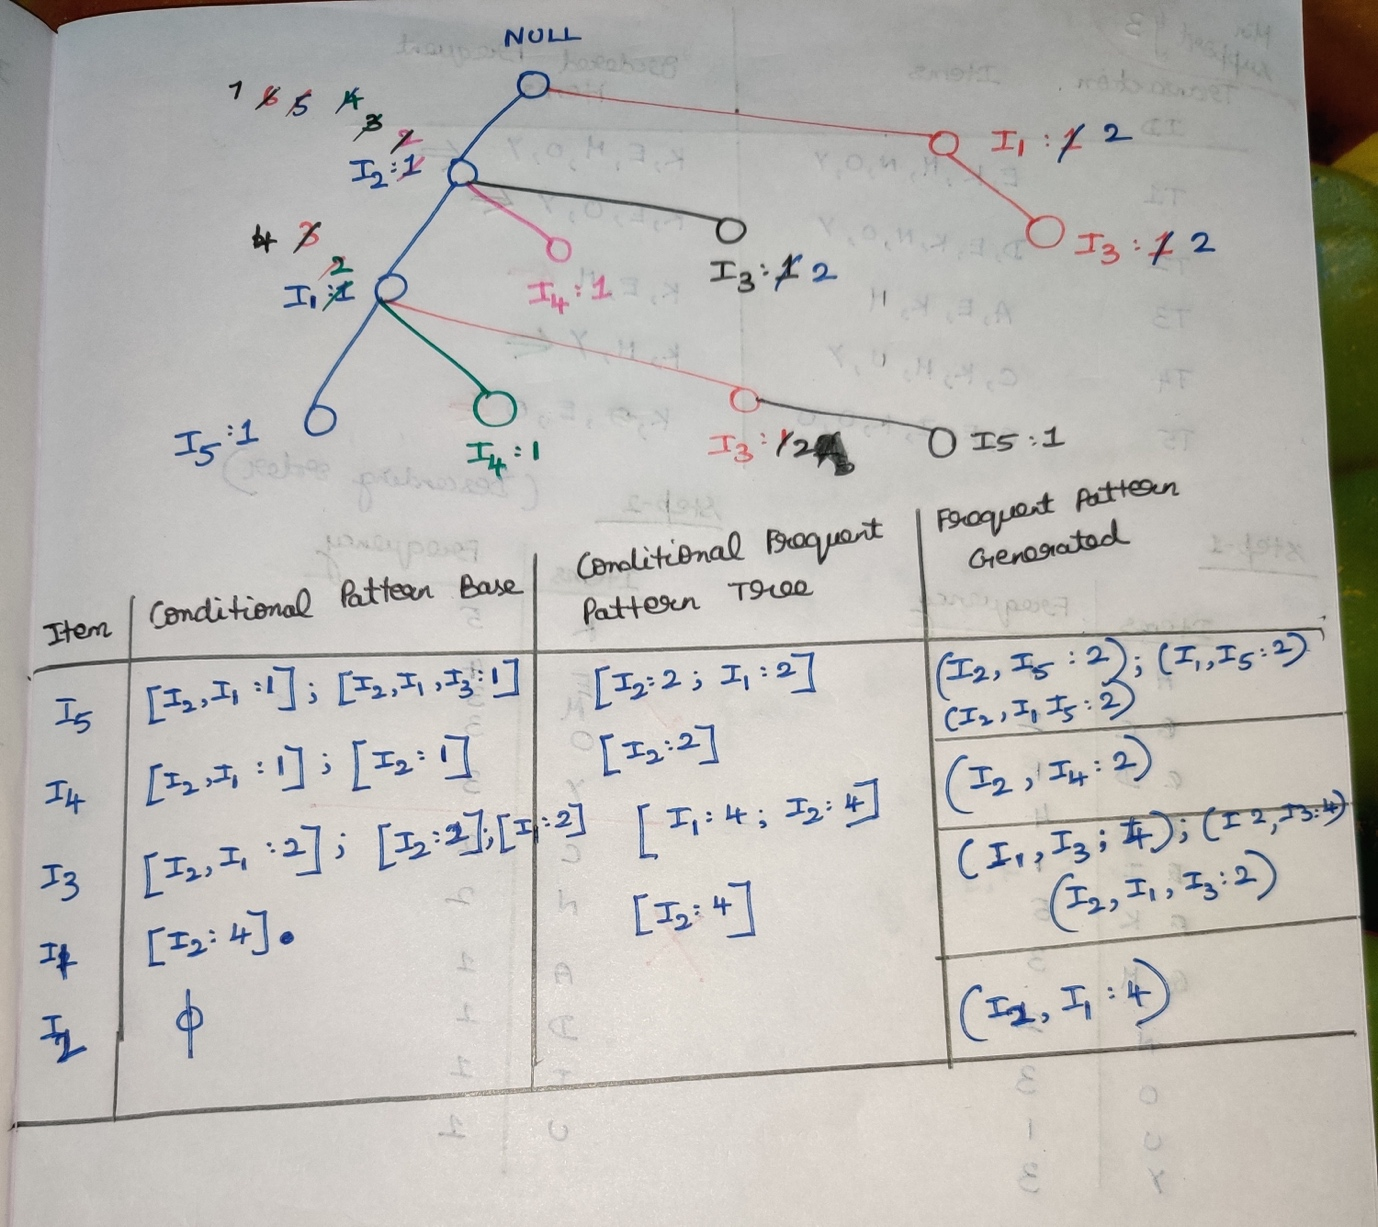 NULL
1 6 5 4
3 2
I2:1
I1:1 2
4 3
2
I1:1
I4:1
I3:1 2
I3:1 2
I5:1
I4:1
I3:1 2
I5:1
Item
Conditional Pattern Base
Conditional Frequent
Pattern Tree
Frequent Pattern
Generated
I5 [I2,I1:1]; [I2,I1,I3:1] [I2:2; I1:2] (I2,I5:2); (I1,I5:2)
(I2,I1 I5:2)
I4 [I2,I1:1]; [I2:1] [I2:2] (I2,I4:2)
I3 [I2,I1:2]; [I2:2];[I1:2] [I1:4; I2:4] (I1,I3;4); (I2,I3:4)
(I2,I1,I3:2)
I1 [I2:4]. [I2:4] (I2,I1:4)
I2 ϕ